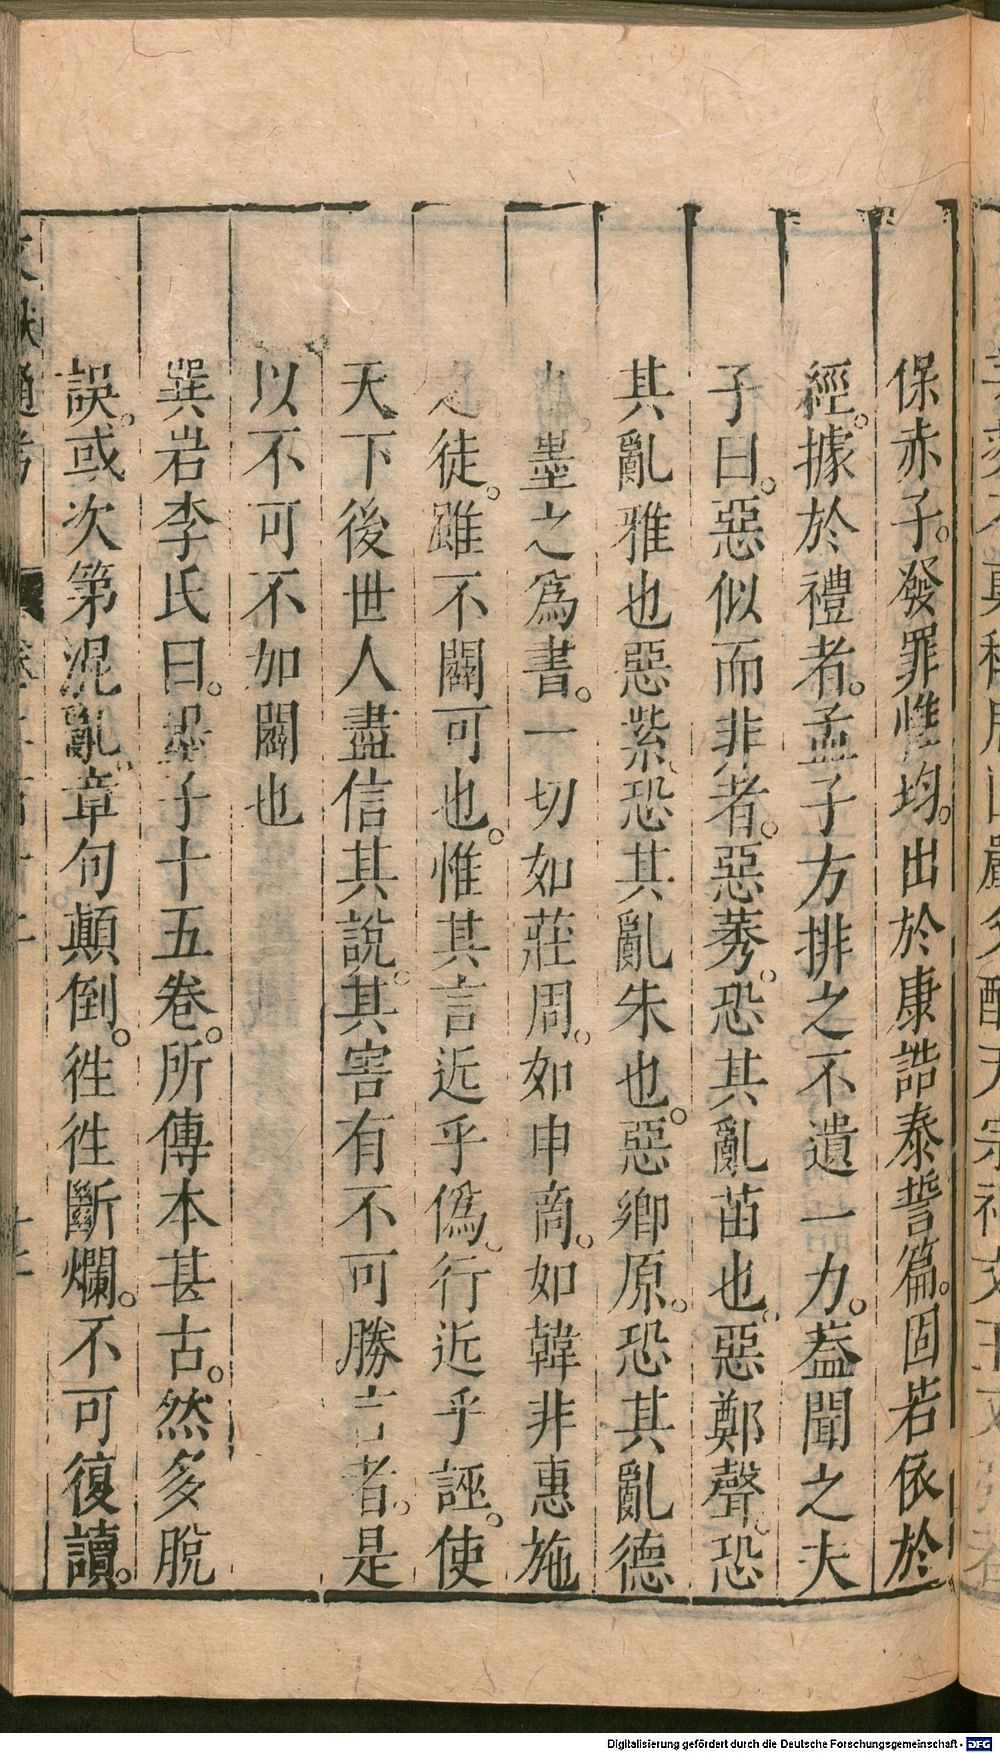 保赤子。發罪惟均。出於康誥泰誓篇。固若依於
經。據於禮者。孟子方排之不遺一力。葢聞之夫
子曰。惡似而非者。惡莠。恐其亂苗也。惡鄭聲。恐
其亂雅也惡紫。恐其亂朱也。惡鄉原。恐其亂德
也。墨之爲書。一切如莊周。如申商。如韓非惠施
之徒。雖不闢可也。惟其言近乎僞。行近乎誣。使
天下後世人盡信其說。其害有不可勝言者。是
以不可不如闢也
巽岩李氏曰。墨子十五卷。所傳本甚古。然多脫
誤。或次第混亂。章句顛倒。徃徃斷爛。不可復讀。
文獻通考 卷二百十二
Digitalisierung gefördert durch die Deutsche Forschungsgemeinschaft - DFG